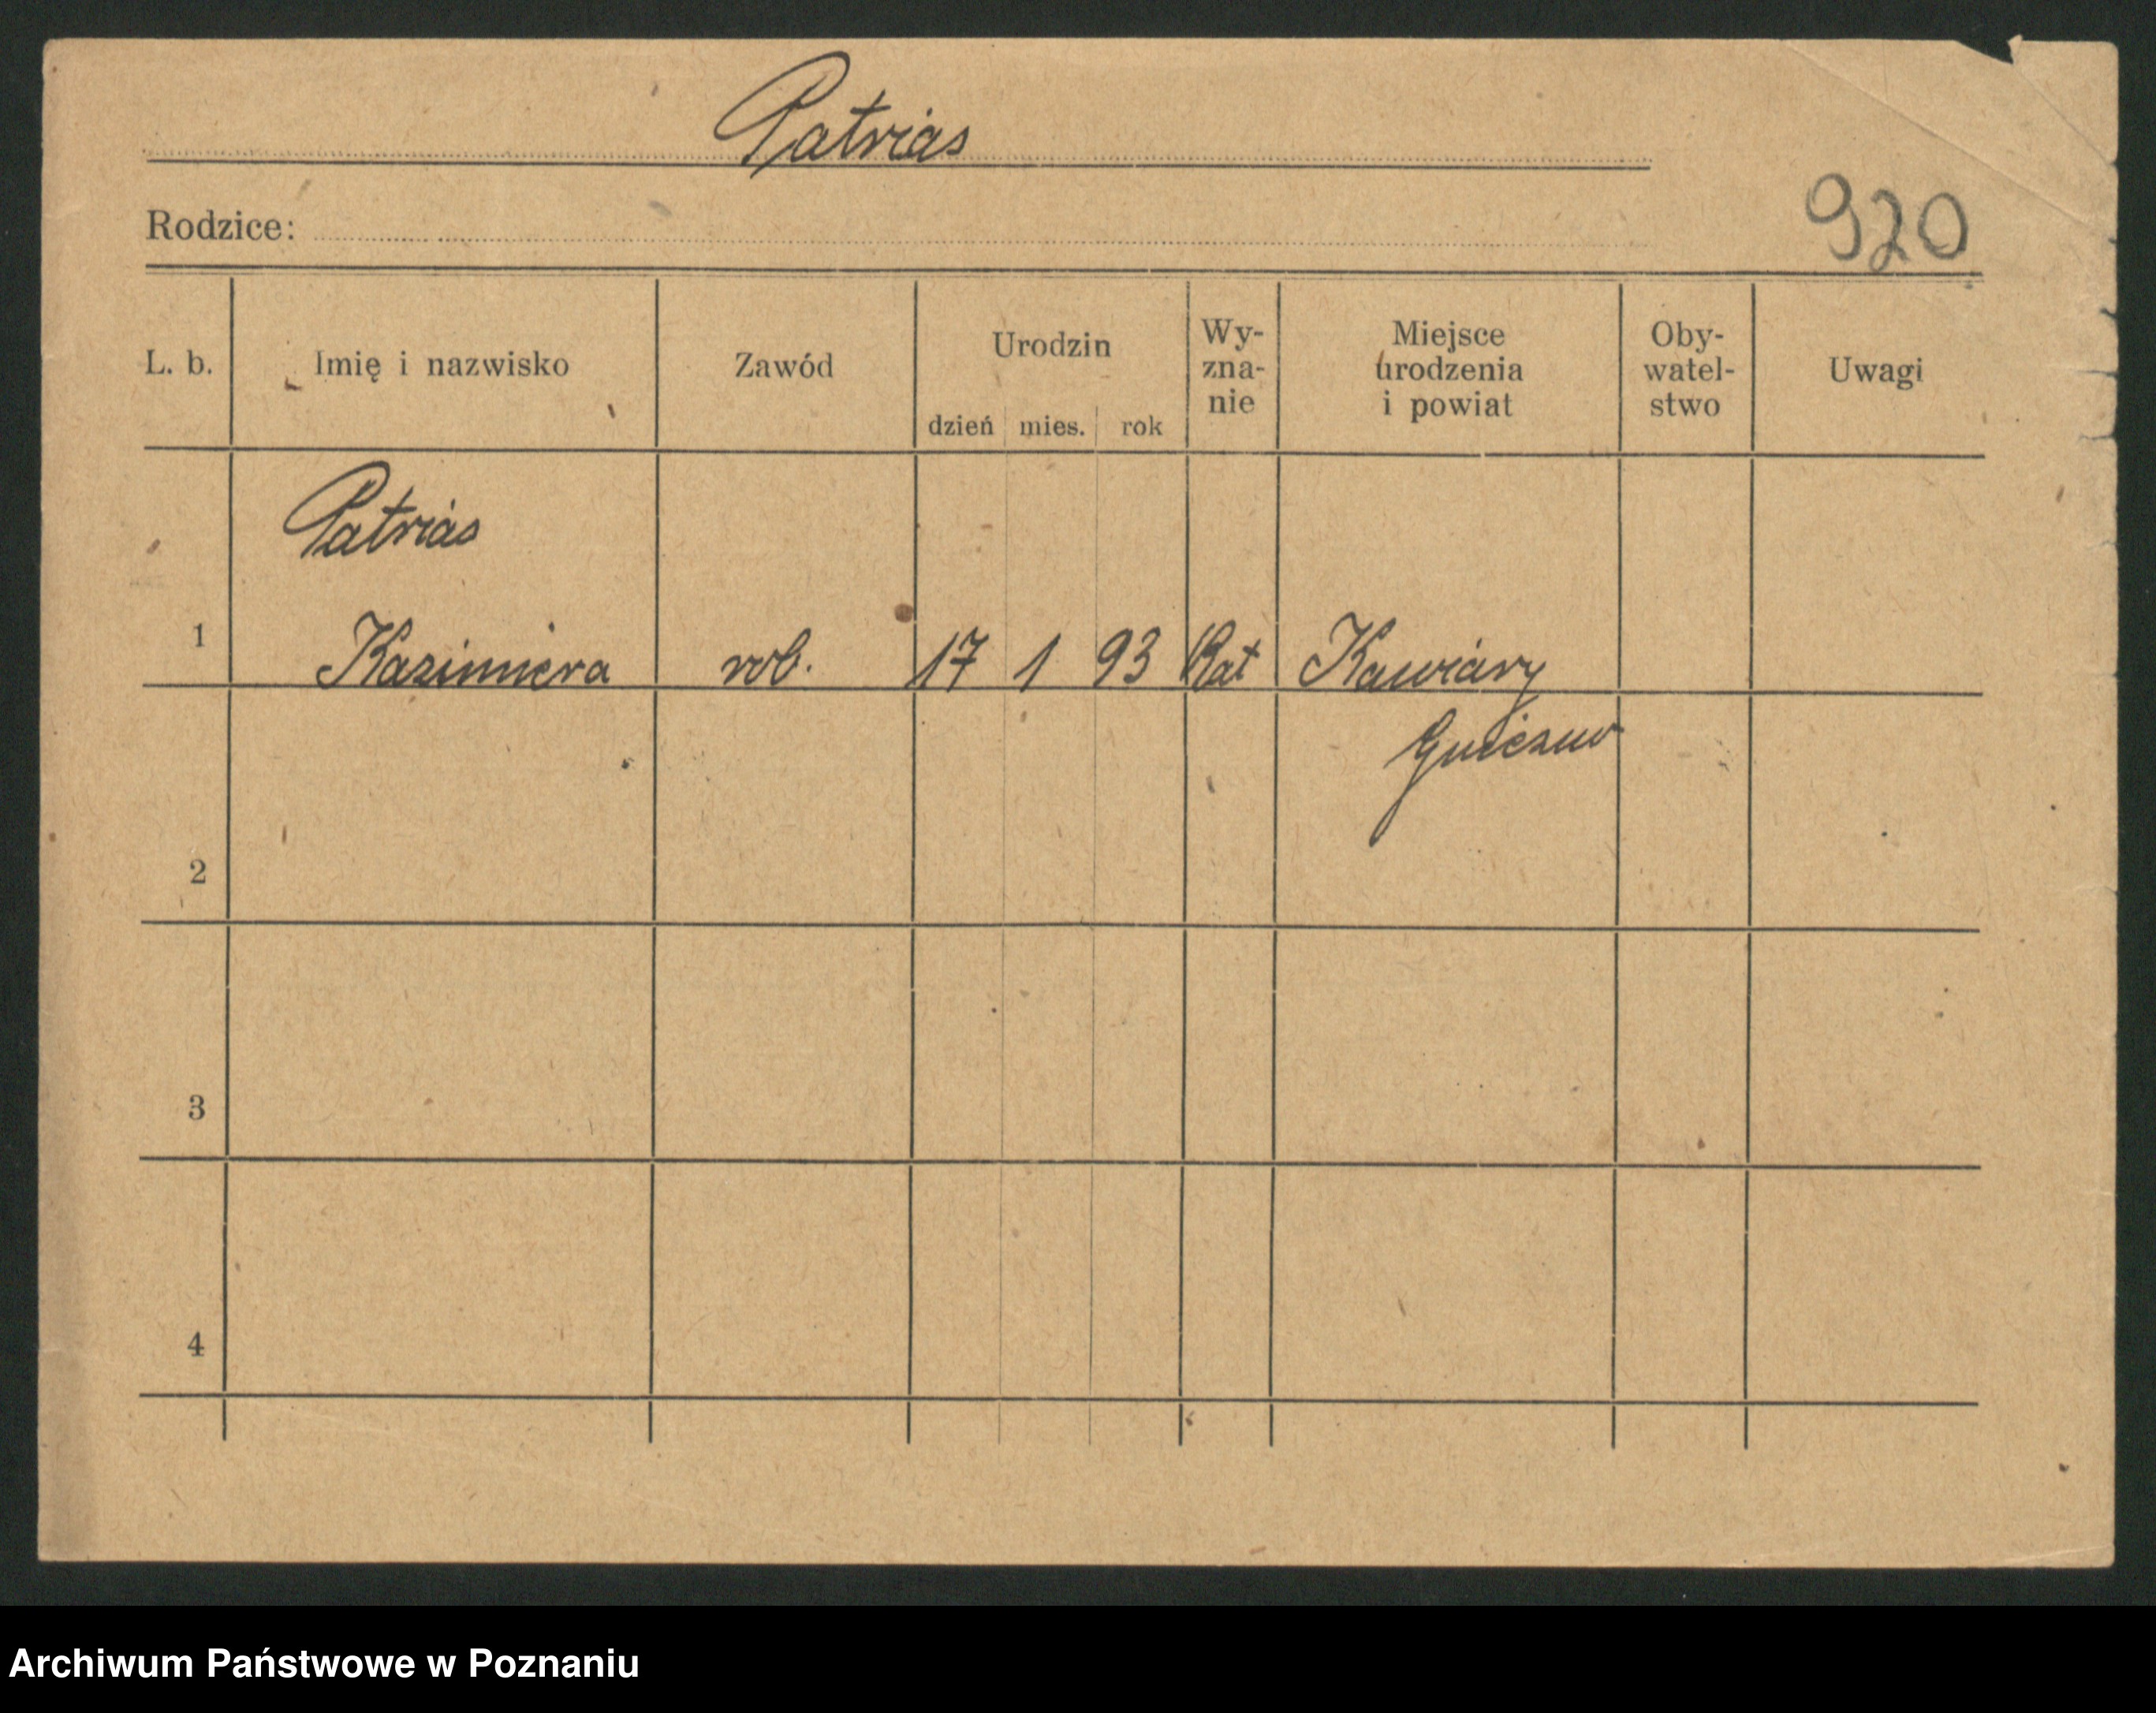 Patrias
Rodzice:
920
L. b.
Imię i nazwisko
Zawód
Urodzin
dzień mies. rok
Wy-
zna-
nie
Miejsce
urodzenia
i powiat
Oby-
watel-
stwo
Uwagi
Patrias
1 Kazimiera rob. 17 1 93 Kat Kawiary
2
3
4
Archiwum Państwowe w Poznaniu